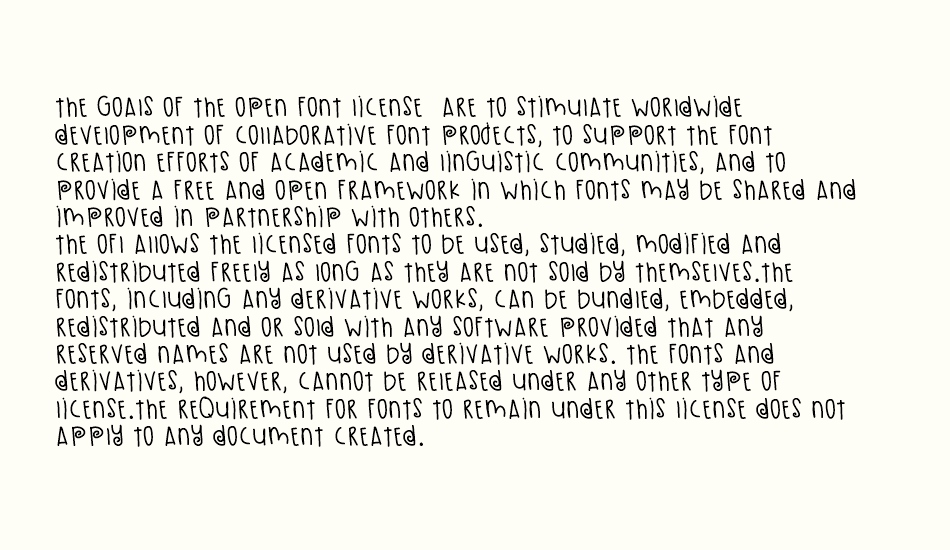 The goals of the Open Font License are to stimulate worldwide
development of collaborative font projects, to support the font
creation efforts of academic and linguistic communities, and to
provide a free and open framework in which fonts may be shared and
improved in partnership with others.
The OFL allows the licensed fonts to be used, studied, modified and
redistributed freely as long as they are not sold by themselves.The
fonts, including any derivative works, can be bundled, embedded,
redistributed and or sold with any software provided that any
reserved names are not used by derivative works. The fonts and
derivatives, however, cannot be released under any other type of
license.The requirement for fonts to remain under this license does not
apply to any document created.